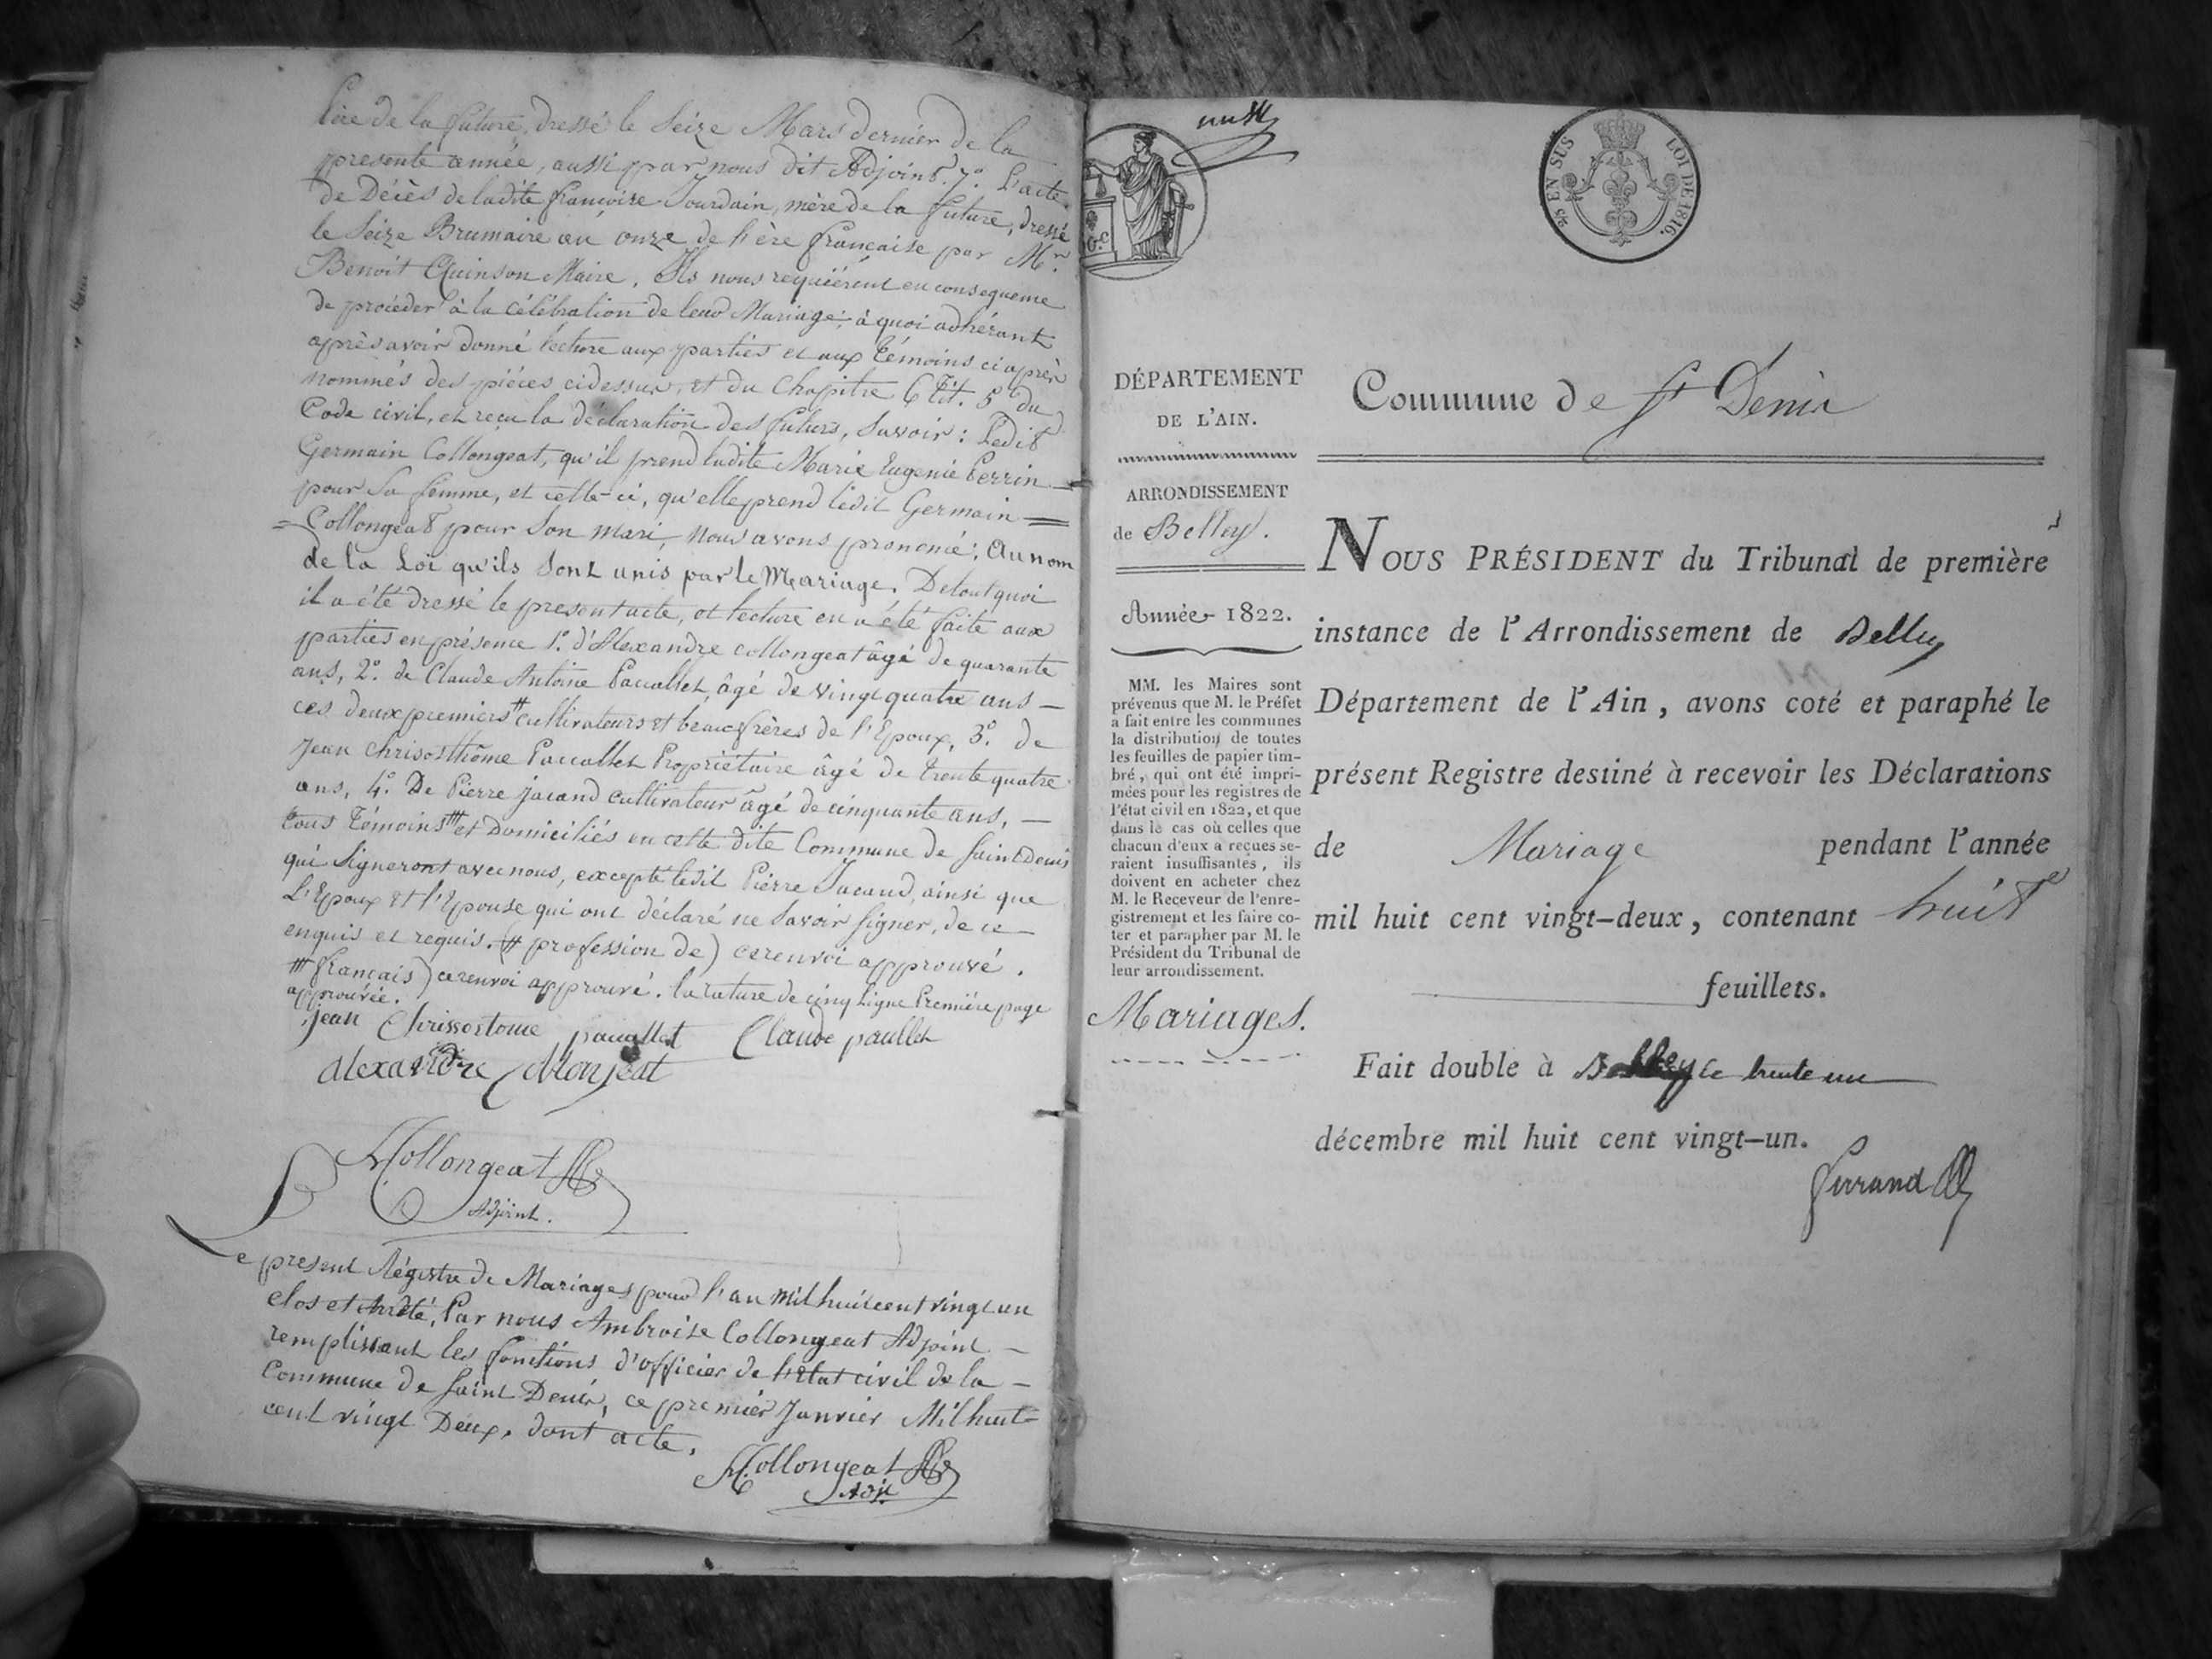 Père de la future, dressé le Seize Mars dernier de la
presente année, aussi par nous dit Adjoint. 7.° L'acte
de Décès de ladite françoise Jourdain, mère de la future, dressé
le Seize Brumaire an onze de l'ère française par Mr.
Benoit Quinson Maire. Ils nous requiérent en consequence
de procéder à la célébration de leur Mariage; à quoi adhérant
après avoir donné lecture aux parties et aux témoins ci après
nommés des piéces cidessus, et du Chapitre 6 Tit. 5 du
Code civil, et reçu la déclaration des futurs, Savoir: Ledit
Germain Collongeat, qu'il prend ladite Marie Eugenie Perrin —
pour Sa femme, et celle-ci, qu'elle prend ledit Germain =
= Collongeat pour Son mari, Nous avons prononcé: Au nom
de la Loi qu'ils Sont unis par le Mariage. De tout quoi
il a été dressé le present acte, et lecture en a été faite aux
parties en présence 1.° d'Alexandre Collongeat âgé de quarante
ans, 2.° de Claude Antoine Paccallet, âgé de vingt quatre ans —
ces deux premiers # cultivateurs et beaux frères de l'Epoux, 3.° de
Jean Chrisosthôme Paccallet Propriétaire âgé de trente quatre
ans, 4.° De Pierre Jacand cultivateur âgé de cinquante ans, —
tous Témoins ⧻ et Domiciliés en cette dite Commune de Saint Denis
qui Signeront avec nous, excepté ledit Pierre Jacand, ainsi que
L'Epoux et l'Epouse qui ont déclaré ne Savoir Signer, de ce —
enquis et requis. (# profession de) ce renvoi approuvé.
⧻ français) ce renvoi approuvé. la rature de cinq Ligne Première page
approuvée.
jean Chrissostome pacallet Claude pacallet
alexandre Collonjeat
A Collongeat
Adjoint.
Le present Régistre de Mariages pour l'an Mil huit cent vingt un
clos et Arrêté, Par nous Ambroise Collongeat Adjoint —
remplissant les fonctions d'officier de l'état civil de la —
Commune de Saint Denis, ce premier Janvier Mil huit =
cent vingt Deux, dont acte.
A. Collongeat
Adjt
25 EN SUS
LOI DE 1816.
DÉPARTEMENT
DE L'AIN.
ARRONDISSEMENT
de Belley.
Année 1822.
MM. les Maires sont
prévenus que M. le Préfet
a fait entre les communes
la distribution de toutes
les feuilles de papier tim-
bré, qui ont été impri-
mées pour les registres de
l'état civil en 1822, et que
dans le cas où celles que
chacun d'eux a reçues se-
raient insuffisantes, ils
doivent en acheter chez
M. le Receveur de l'enre-
gistrement et les faire co-
ter et parapher par M. le
Président du Tribunal de
leur arrondissement.
Mariages.
Commune de St Denis
NOUS PRÉSIDENT du Tribunal de première
instance de l'Arrondissement de Belley
Département de l'Ain, avons coté et paraphé le
présent Registre destiné à recevoir les Déclarations
de Mariage pendant l'année
mil huit cent vingt-deux, contenant huit
feuillets.
Fait double à Belley le trente un
décembre mil huit cent vingt-un.